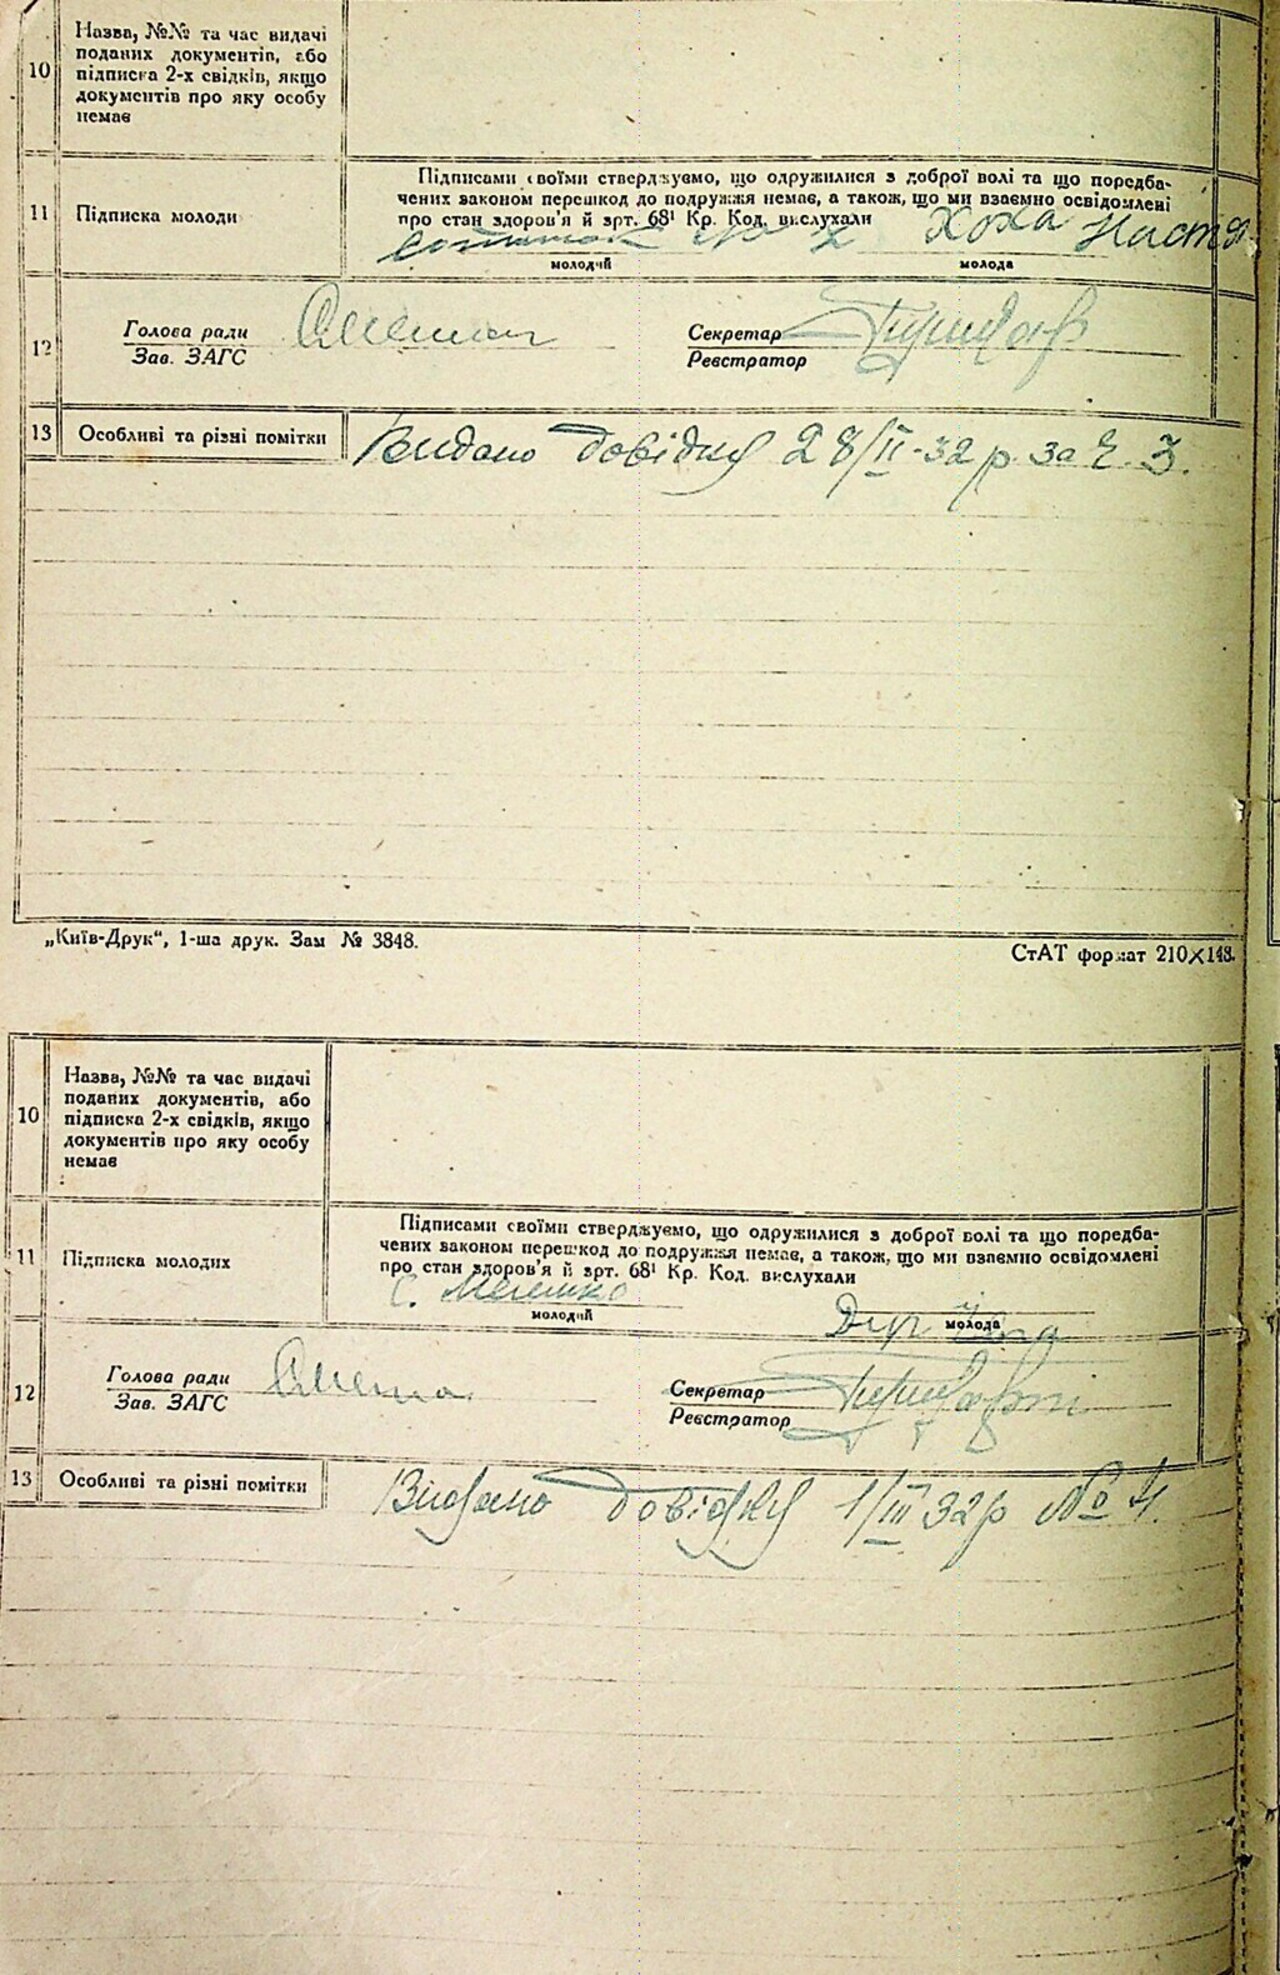 10
Назва, №№ та час видачі
поданих документів, або
підписка 2-х свідків, якщо
документів про яку особу
немає
11
Підписка молоди
Підписами своїми стверджуємо, що одружилися з доброї волі та що передба-
чених законом перешкод до подружжя немає, а також, що ми взаємно освідомлені
про стан здоров'я й арт. 68¹ Кр. Код. вислухали
Хоха Настя
молодий
молода
12
Голова ради
Зав. ЗАГС
Секретар
Реєстратор
13
Особливі та різні помітки
Видано довідку 28/II-32 р. за Ч. 3.
„Київ-Друк“, 1-ша друк. Зам № 3848.
СтАТ формат 210×148.
10
Назва, №№ та час видачі
поданих документів, або
підписка 2-х свідків, якщо
документів про яку особу
немає
11
Підписка молодих
Підписами своїми стверджуємо, що одружилися з доброї волі та що поредба-
чених законом перешкод до подружжя немає, а також, що ми взаємно освідомлені
про стан здоров'я й арт. 68¹ Кр. Код. вислухали
молодий
молода
12
Голова ради
Зав. ЗАГС
Секретар
Реєстратор
13
Особливі та різні помітки
Видано довідку 1/III 32р № 4.